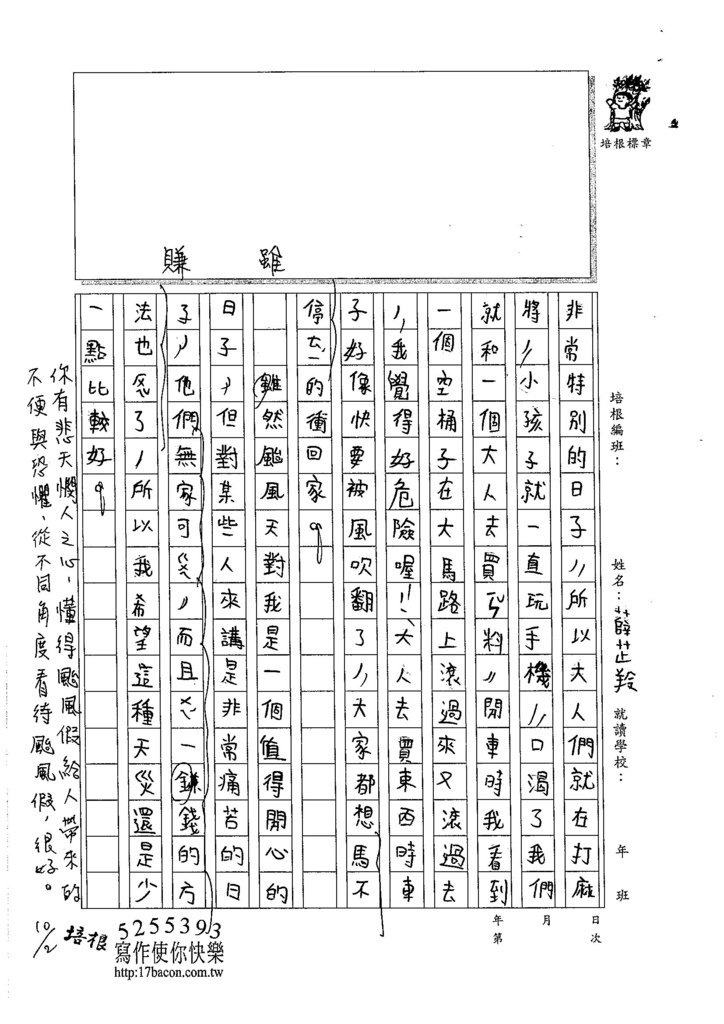 培根標章
培根編班：
姓名：薛芷羚
就讀學校：
年 班
年 月 日
第 次
非常特別的日子，所以大人們就在打麻
將，小孩子就一直玩手機，口渴了我們
就和一個大人去買料，開車時我看到
一個空桶子在大馬路上滾過來又滾過去
，我覺得好危險喔！大人去買東西時車
子好像快要被風吹翻了，大家都想馬不
停的衝回家。
雖然颱風天對我是一個值得開心的
日子，但對某些人來講是非常痛苦的日
子，他們無家可，而且一賺錢的方
法也了，所以我希望這種天災還是少
一點比較好。
雖
賺
你有悲天憫人之心，懂得颱風假給人帶來的
不便與恐懼，從不同角度看待颱風假，很好。
10/2
培根
5255393
寫作使你快樂
http:17bacon.com.tw